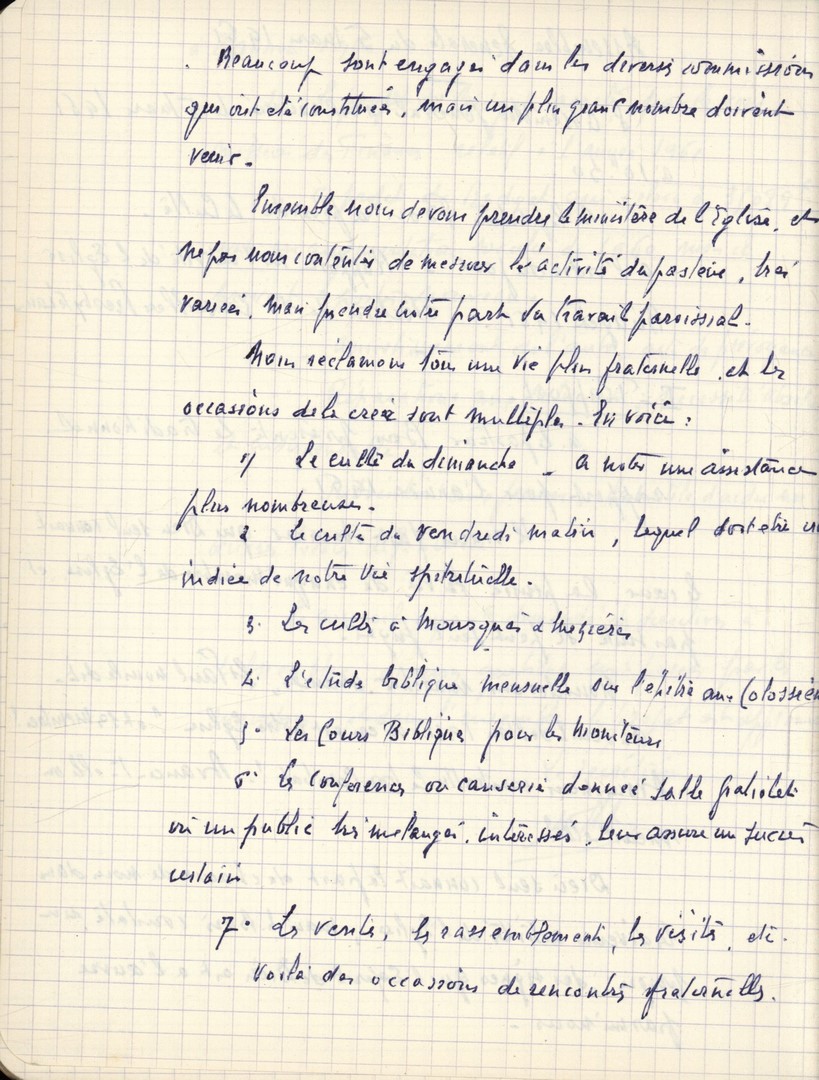 . Beaucoup sont engagés dans les diverses commissions
qui ont été constituées, mais un plus grand nombre doivent
venir.
Ensemble nous devons prendre le ministère de l'Église, et
ne pas nous contenter de mesurer les activités du pasteur, très
variées, mais prendre notre part du travail paroissial.
Nous réclamons tous une vie plus fraternelle, et les
occasions de la créer sont multiples. En voici :
1) Le culte du dimanche - à noter une assistance
plus nombreuse.
2 Le culte du vendredi matin, lequel doit être un
indice de notre vie spirituelle.
3. Les cultes à Mousquès & Mézières
4. L'étude biblique mensuelle sur l'épître aux Colossiens
5. Les Cours Bibliques pour les Moniteurs
6° Les conférences ou causeries données salle
où un public très mélangé, intéressé, leur assure un succès
certain
7° Les ventes, les rassemblements, les visites, etc.
Voilà des occasions de rencontres fraternelles.